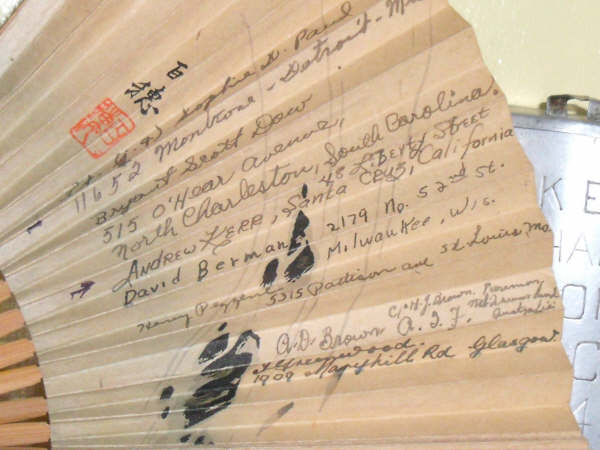 百穂
Sophie D. Paul
11652 Montrose - Detroit - M
Bryant Scott Dow
515 O'Hear avenue,
North Charleston, South Carolina.
ANDREW KERR, 48 LIBERTY STREET
Santa Cruz, California
David Berman 2179 No. 52nd St.
Milwaukee, Wis.
Henry 5315 Pattison ave St Louis Mo.
A.D. Brown A.I.F. C/o H.J. Brown
Australia
Greenwood.
1909 Maryhill Rd Glasgow.
K E
HA
O
C
4